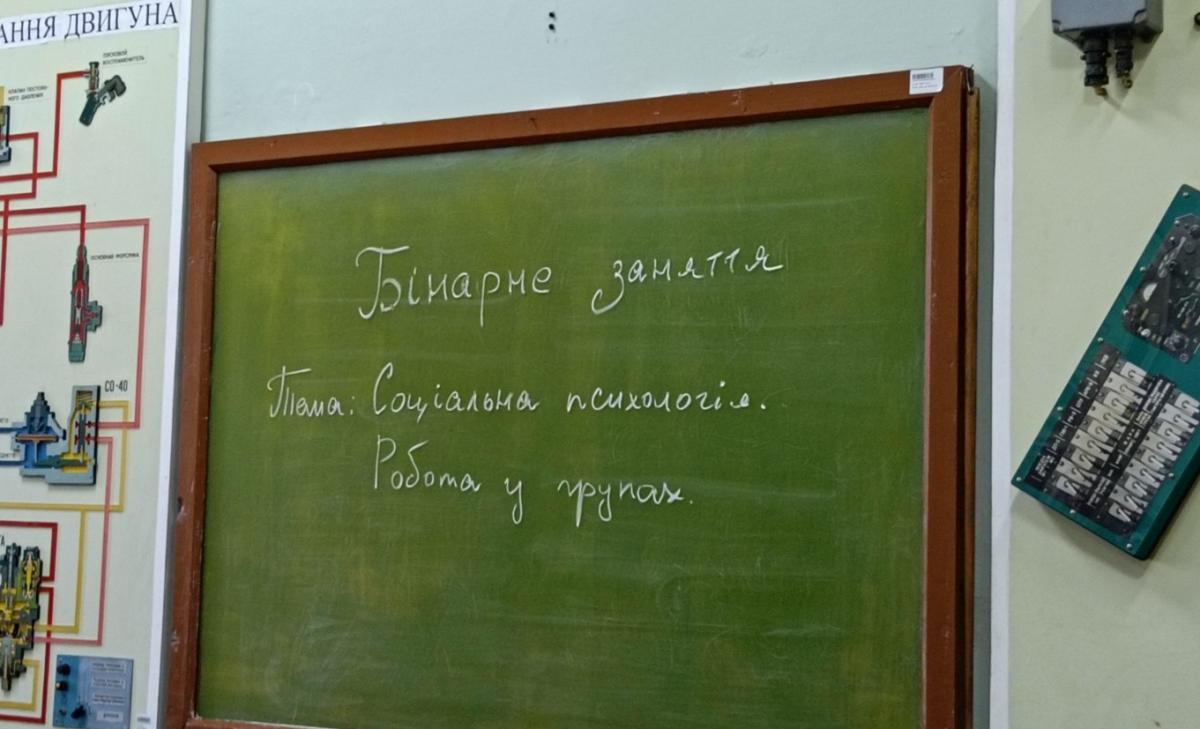 АННЯ ДВИГУНА
ПУСКОВОЙ
ВОСПЛАМЕНИТЕЛЬ
КЛАПАН ПОСТОЯН-
НОГО ДАВЛЕНИЯ
ОСНОВНАЯ ФОРСУНКА
СО-40
Бінарне заняття
Тема: Соціальна психологія.
Робота у групах.